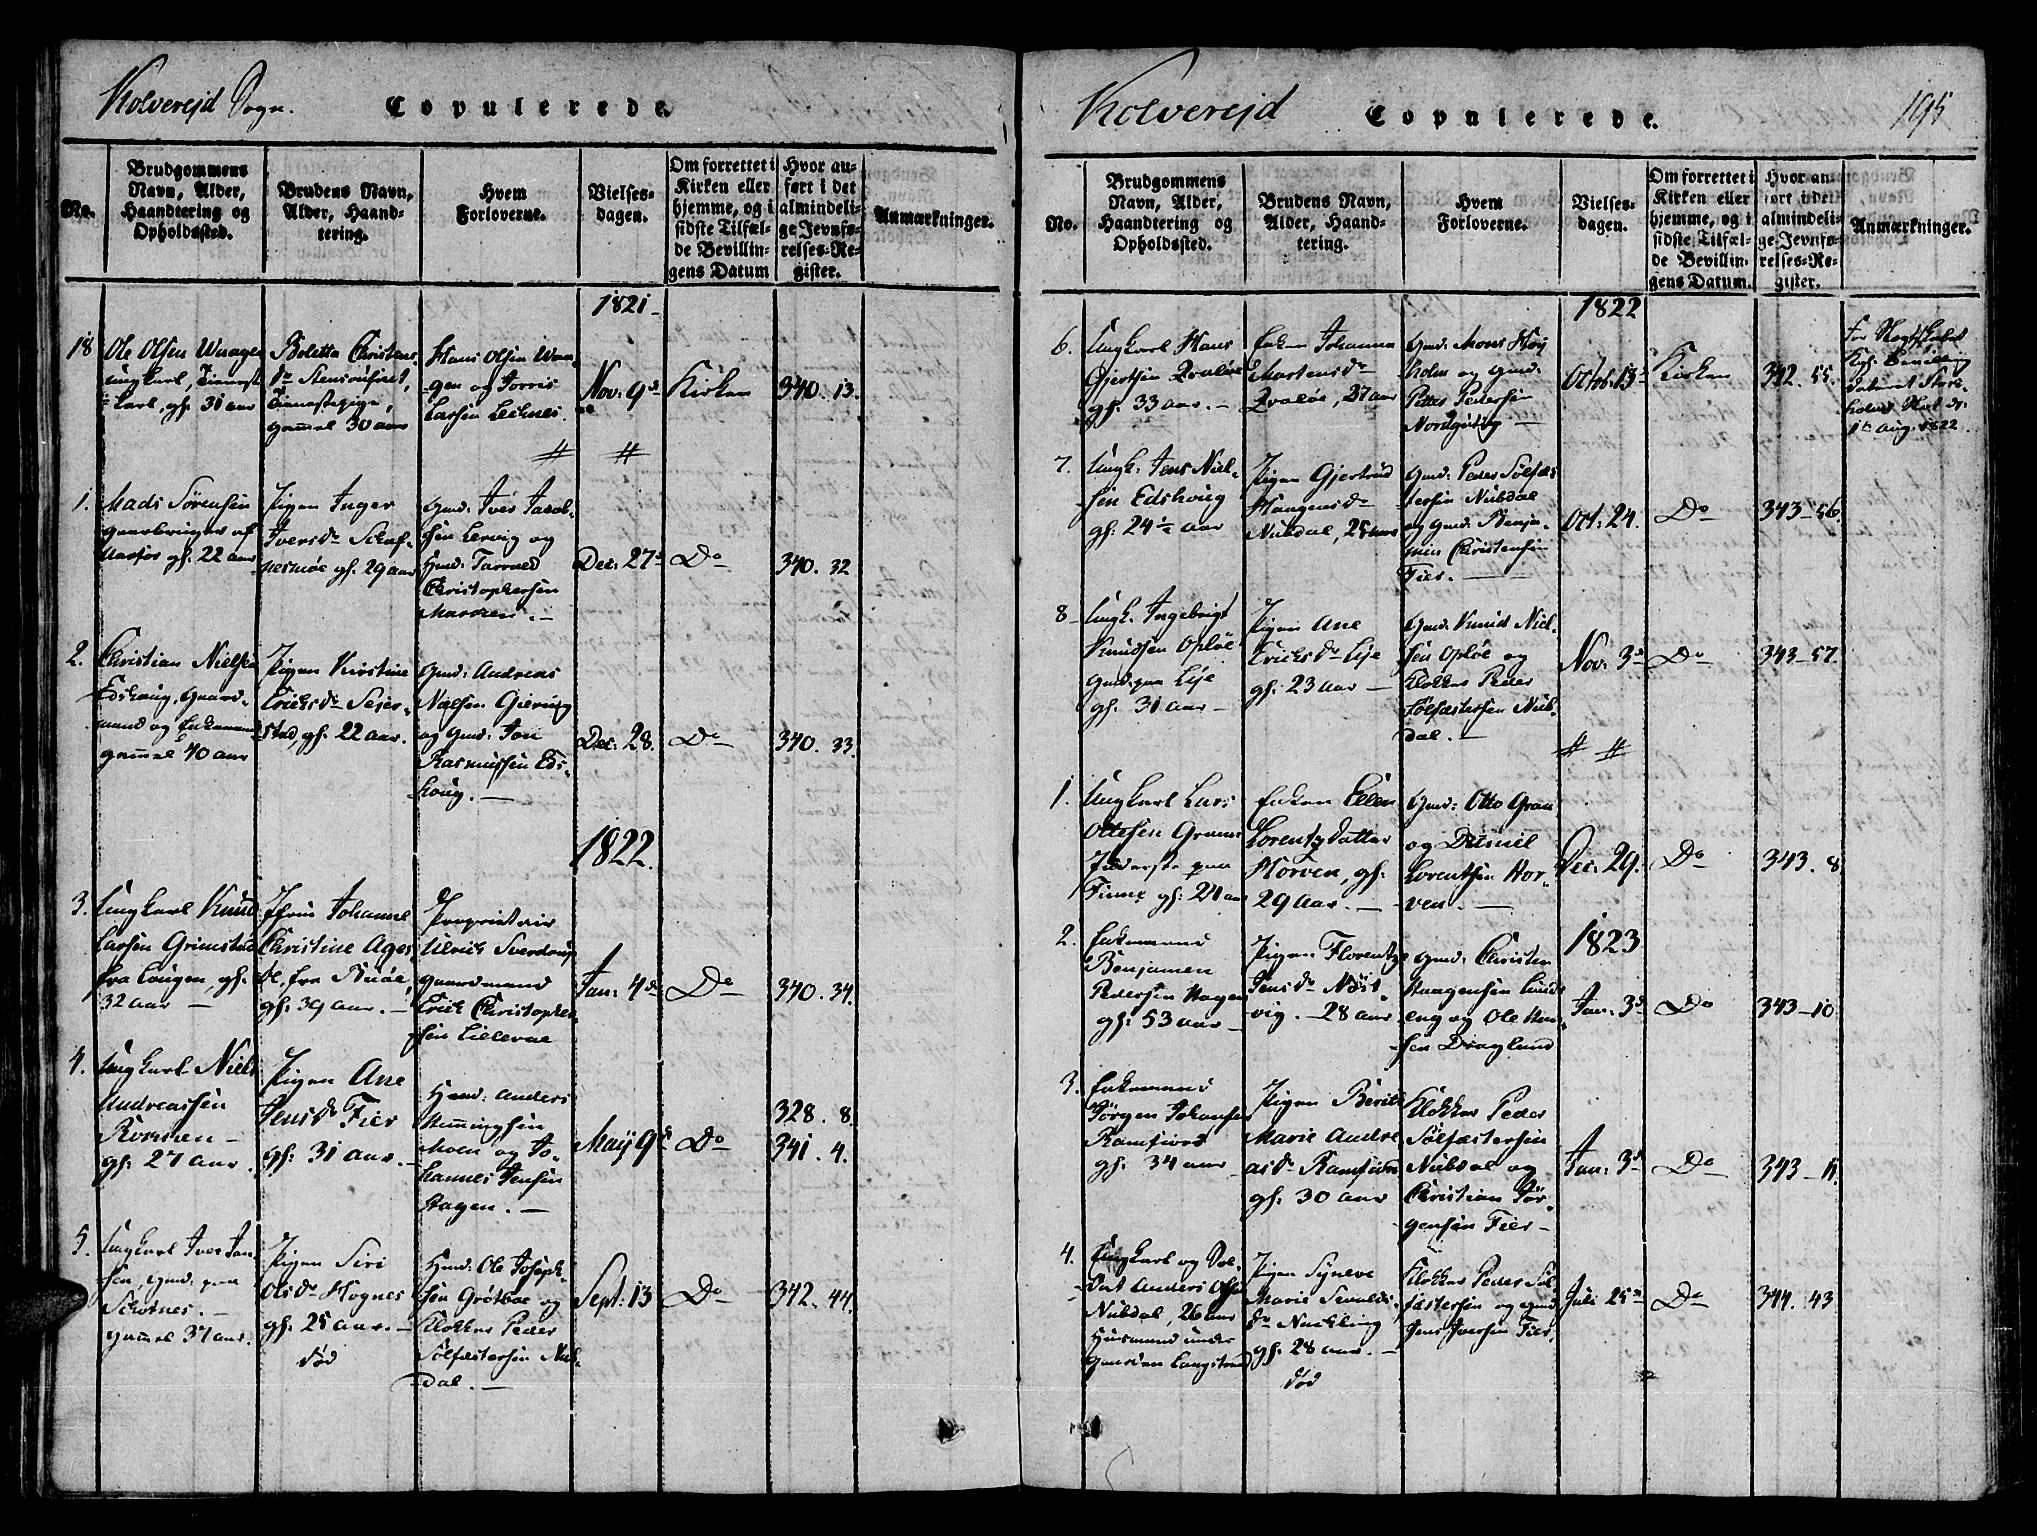 Kolverejd Sogn.
Copulerede.
No.
Brudgommens
Navn, Alder,
Haandtering og
Opholdssted.
Brudens Navn,
Alder, Haand-
tering.
Hvem
Forloverne.
Vielses-
dagen.
Om forrettet i
Kirken eller
hjemme, og i
sidste Tilfæl-
de Bevillin-
gens Datum
Hvor an-
ført i det
almindeli-
ge Jevnfø-
relses-Re-
gister.
Anmærkninger.
1821
18
Ole Olsen Waagen
ungkarl, Tienest-
karl, gl: 31 aar
Boletta Christens
Tienestepige,
gammel 30 aar
Hans Olsen Waa-
gen og Torris
Larsen Leknes.
Nov: 9d
Kirken
340. 13.
1.
Mads Sørensen
gl: 22 aar
Pigen Inger
Iversdr
gl: 29 aar
Gmd: Iver Jacob-
sen Lervig og
Hmd:
Christophersen
Dec: 27d
Do
340. 32
2.
Christian Nielsen
Edshoug, Gaard-
mand og Enkemand
gammel 40 aar
Pigen Kirstine
Ericksdr Seier-
stad, gl: 22 aar.
Gmd: Andreas
Nielsen
og Gmd: Jon
Rasmussen Eds-
houg.
Dec: 28.
Do
340. 33.
1822.
3.
Ungkarl Knud
Larsen Grimstad
fra Lougen, gl:
32 aar
Jfru Johanne
Christine Ages
gl: 39 aar.
Proprietair
Ulrich Sverdrup
gaardmand
Erick Christopher-
sen Lillevae
Jan: 4d
Do
340. 34.
4.
Ungkarl Niels
Andreassen
gl: 27 aar
Pigen Ane
Jensdr Fier
gl: 31 aar.
Hmd: Anders
Hemmingsen
Moen og Jo-
hannes Jensen
Hagen.
May 9d
Do
328. 8.
341. 4.
5.
Ungkarl Iver Jan-
sen, Gmd: paa
gammel 37 aar.
Pigen Siri
Olsdr Hognes
gl: 25 aar.
død
Hmd: Ole Joseph-
sen Grøtboe og
Klokker Peder
Sølfæstersen Nub-
dal.
Sept: 13
Do
342. 44.
Kolverejd
Copulerede.
195
No.
Brudgommens
Navn, Alder,
Haandtering og
Opholdssted.
Brudens Navn,
Alder, Haand-
tering.
Hvem
Forloverne.
Vielses-
dagen.
Om forrettet i
Kirken eller
hjemme, og i
sidste Tilfæl-
de Bevillin-
gens Datum.
Hvor an-
ført i det
almindeli-
ge Jevnfø-
relses-Re-
gister.
Anmærkninger.
1822
6.
Ungkarl Hans
Gjertsen Qvaløe
gl: 33 aar.
Enken Johanna
Mortensdr
Qvaløe, 27 aar
Gmd: Mons Høy
holm og Gmd:
Petter Pedersen
Octob: 13d
Kirken
342. 55.
For Slegtskabet
Kgl: Bevilling
dateret Stok-
holms Slot d:
1te Aug: 1822.
7.
Ungk: Jens Niel-
sen Edshoug
gl: 24½ aar
Pigen Gjertrud
Haagensdr
Nubdal, 25 aar
Gmd: Peder Sølfæs
tersen Nubdal
og Gmd: Benja-
min Christensen
Fier.
Oct: 24.
Do
343 - 56.
8
Ungk. Ingebrigt
Knudsen Opløe
Gmd: paa Leje
gl: 31 aar
Pigen Ane
Ericksdr Leje
gl: 23 aar
Gmd: Knud Niel-
sen Opløe og
Klokker Peder
Sølfæstersen Nub-
dal.
Nov: 3d
Do
343 - 57.
1.
Ungkarl Lars
Ottesen Gran
gl: 24 aar
Enken Ellen
Lorentzdatter
Horven, gl:
29 aar.
Gmd: Otto Gran
og Daniel
Lorentsen Hor-
ven.
Dec: 29.
Do
343. 8
1823
2.
Enkemand
Benjamen
Pedersen Hagen
gl: 53 aar
Pigen Florentz
Jensdr
vig. - 28 aar
Gmd: Christen
Haagensen Lund-
eng og Ole Han-
sen Draglund
Jan: 3d
Do
343 - 10.
3.
Enkemand
Jørgen Johansen
Ramfiord
gl: 34 aar
Pigen Berit
Marie Andre
asdr Ramfiord
gl: 30 aar
Klokker Peder
Sølfæstersen
Nubdal og
Christian Jør-
gensen Fier
Jan: 3d
Do
343 - 11.
4.
Ungkarl og Sol-
dat Anders Olsen
Nubdal, 26 aar
Huusmand under
Gaarden Langstrand
Pigen Syneve
Marie Sevalds-
dr
gl: 28 aar.
død
Klokker Peder Søl-
fæstersen og Gmd:
Jens Iversen Fier.
Juli 25de
Do
344. 43